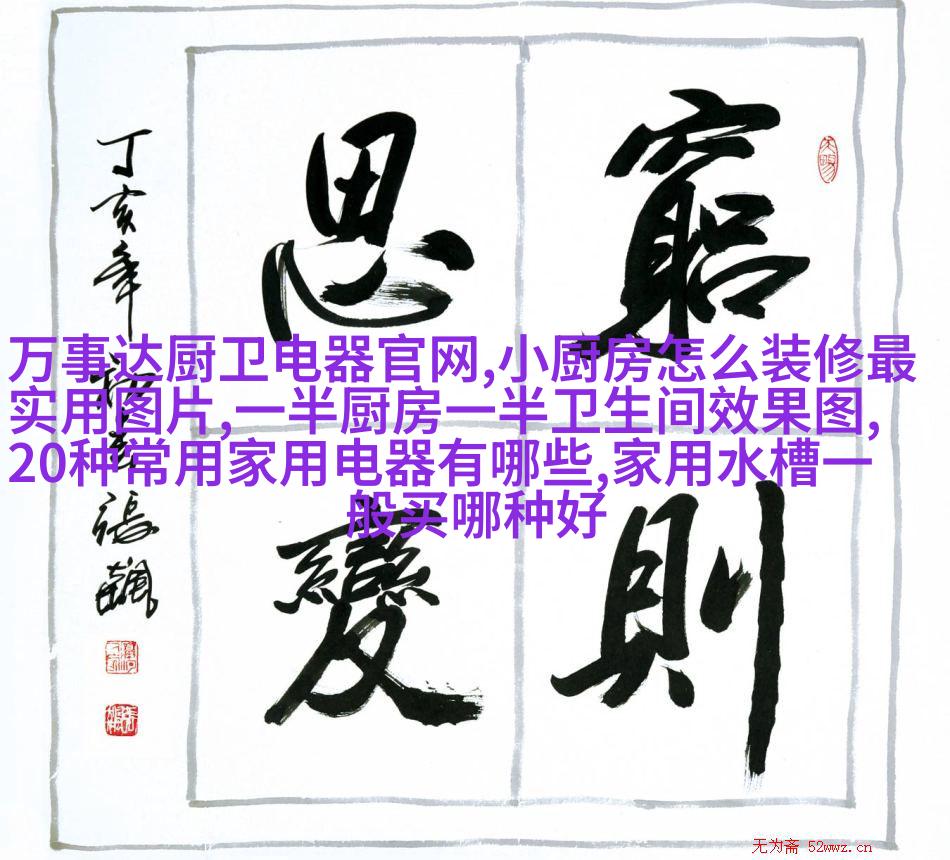 窮則
思變
丁亥年
張飆
万事达厨卫电器官网,小厨房怎么装修最
实用图片,一半厨房一半卫生间效果图,
20种常用家用电器有哪些,家用水槽一
般买哪种好
无为斋 52wwz.cn